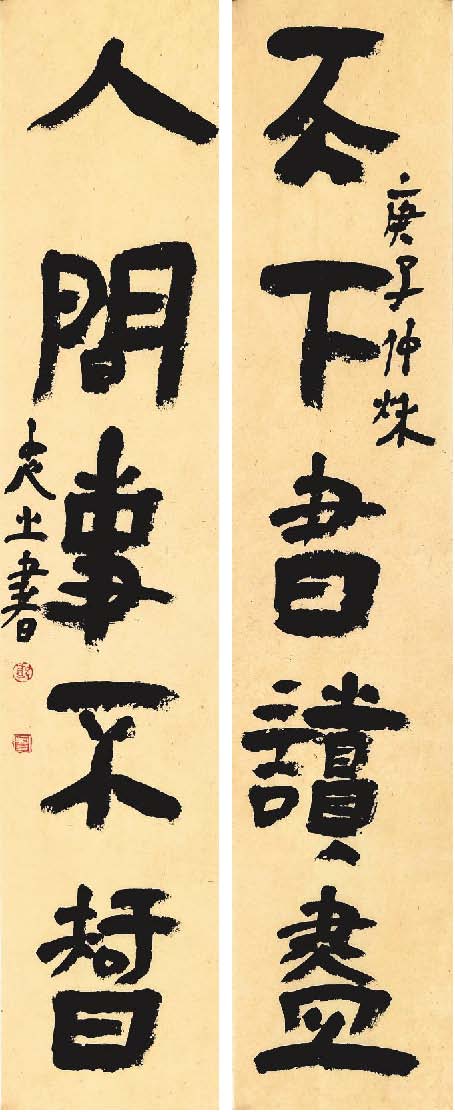 天下書讀盡
庚子仲秋
人間事不智
之書